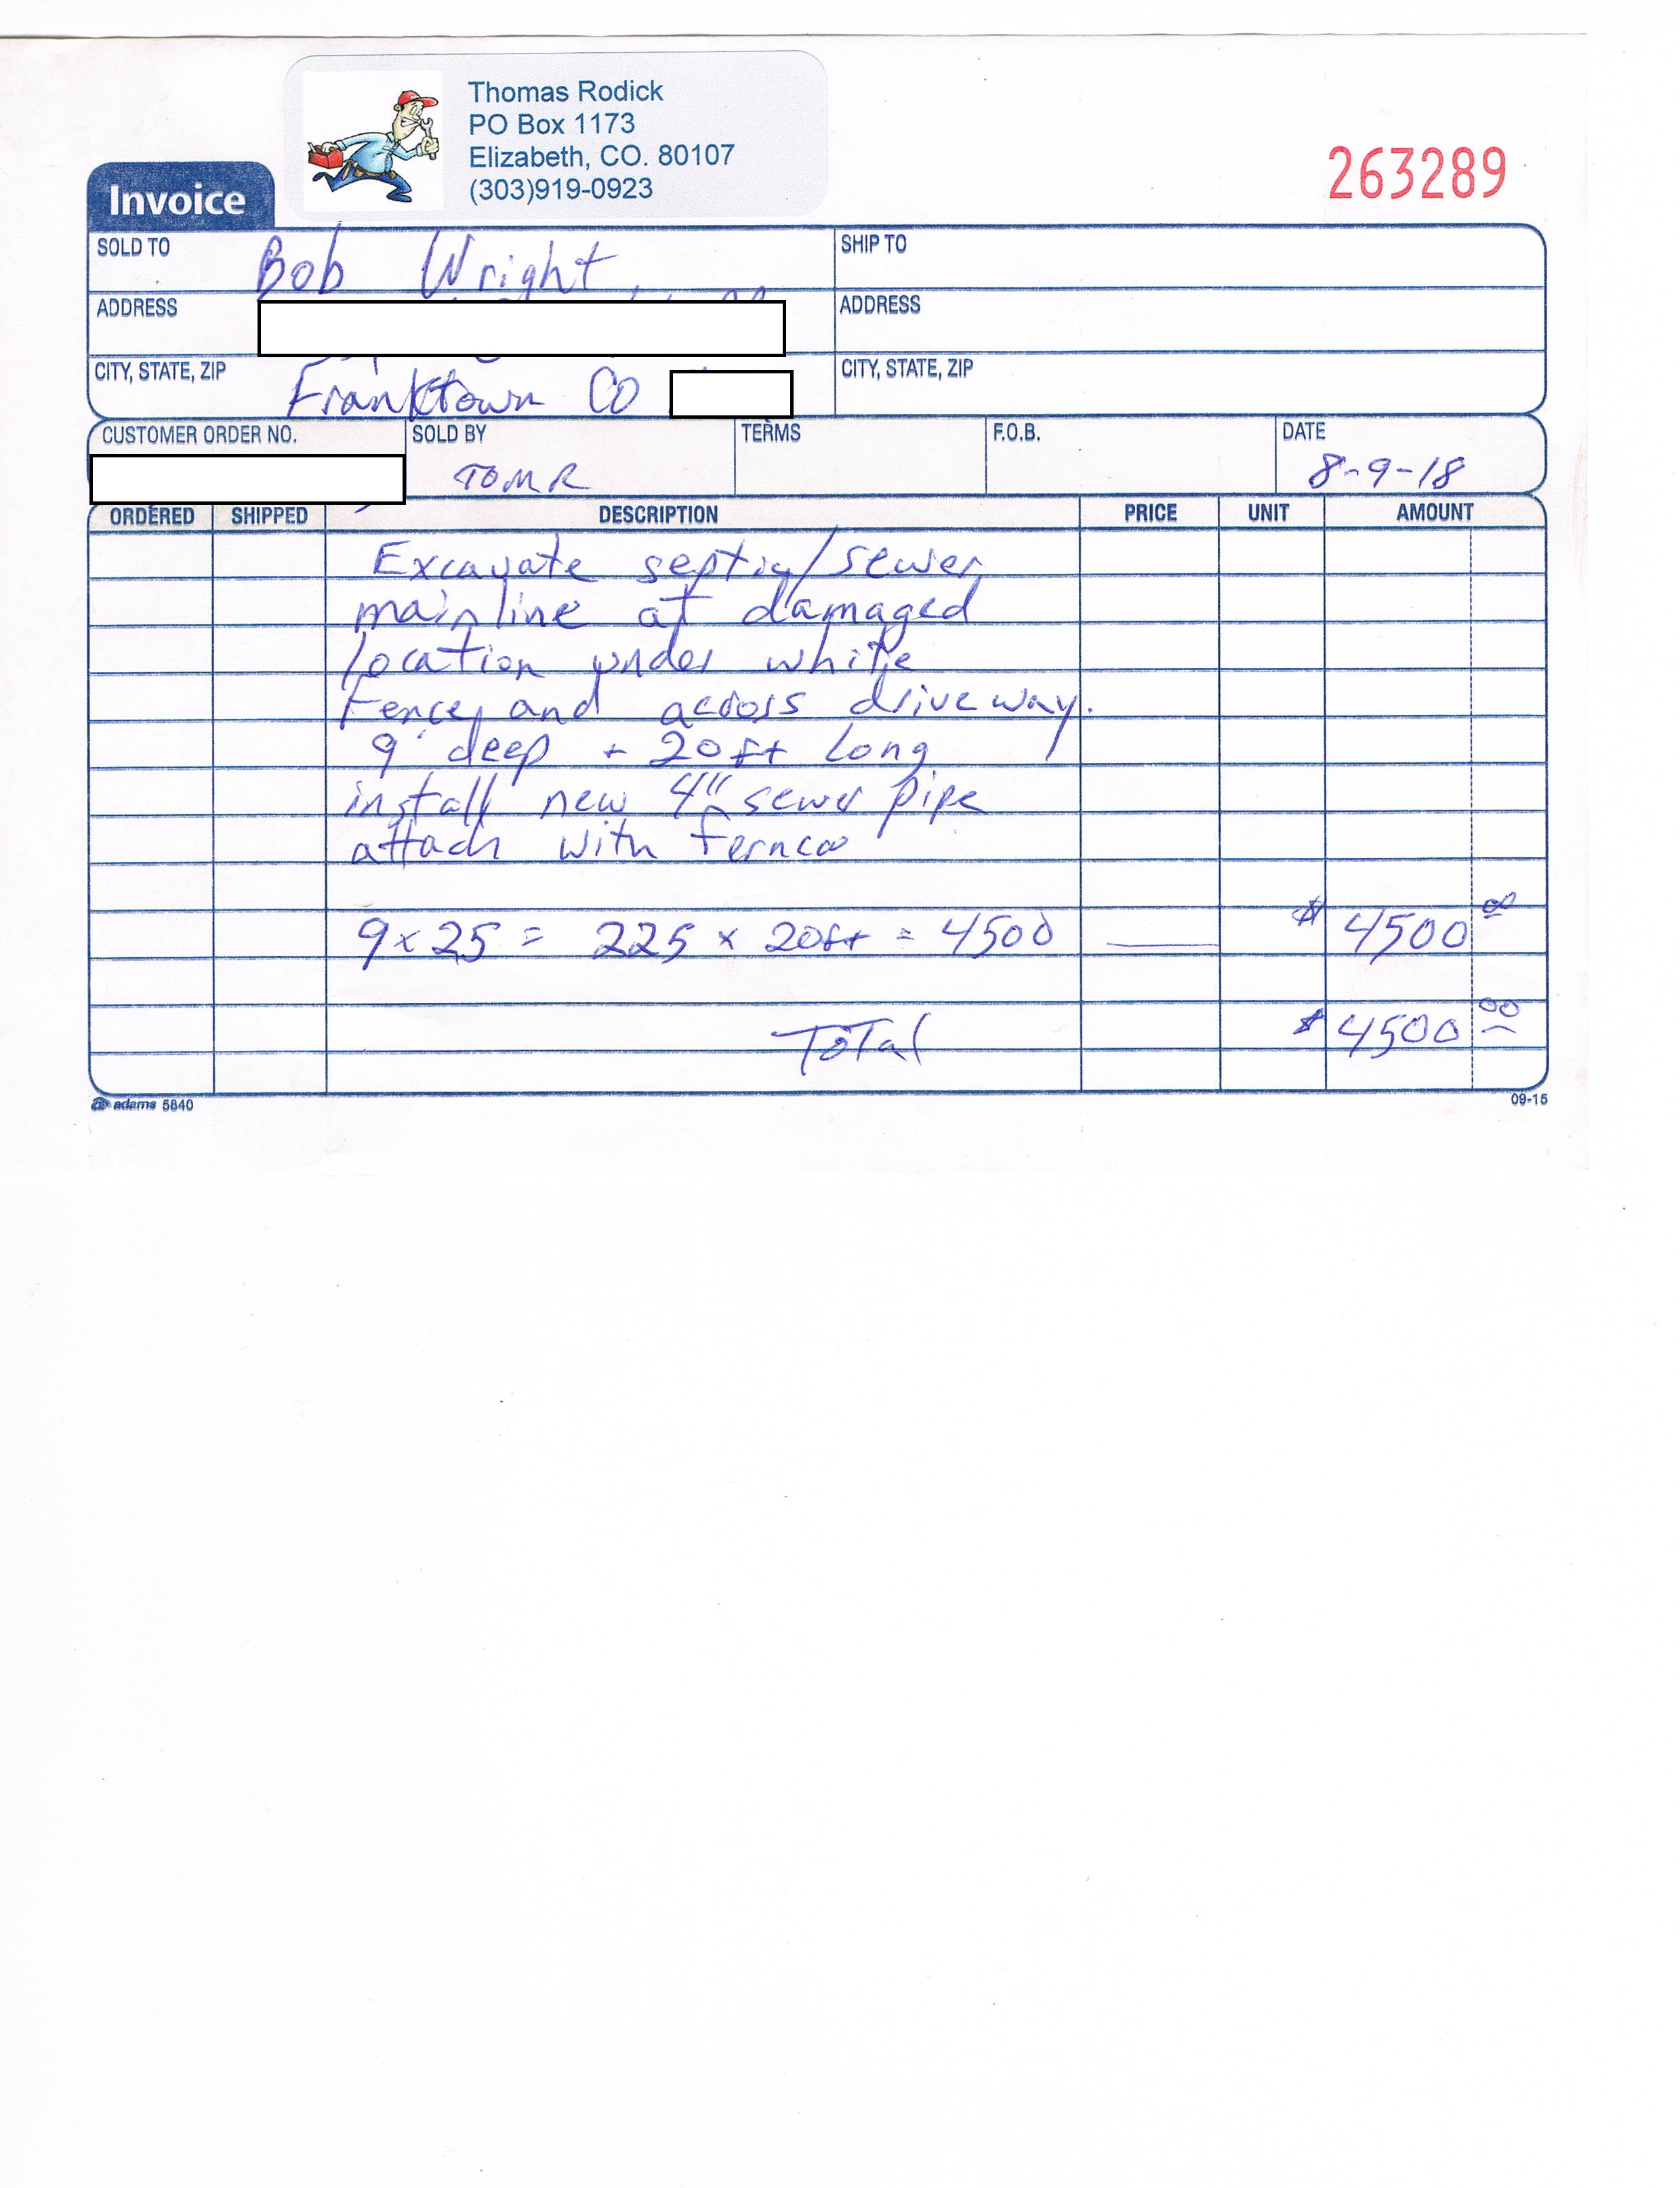 Thomas Rodick
PO Box 1173
Elizabeth, CO. 80107
(303)919-0923
263289
Invoice
SOLD TO Bob Wright
SHIP TO
ADDRESS
ADDRESS
CITY, STATE, ZIP Franktown CO
CITY, STATE, ZIP
CUSTOMER ORDER NO. SOLD BY TERMS F.O.B. DATE
TOM R 8-9-18
ORDERED SHIPPED DESCRIPTION PRICE UNIT AMOUNT
Excavate septic/sewer
mainline at damaged
location under white
Fence, and across driveway.
9' deep + 20ft Long
install new 4" sewer pipe
attach with fernco
9 x 25 = 225 x 20ft = 4500 $ 4500 00
Total $ 4500 00
adams 5840 09-15